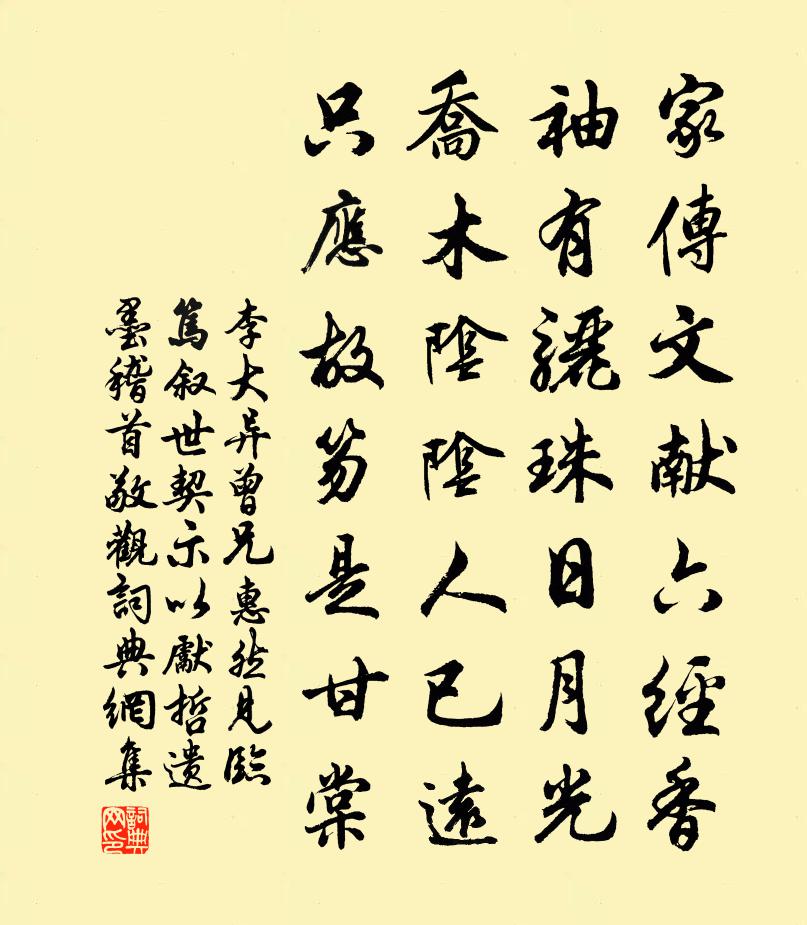 家傳文献六經香
袖有驪珠日月光
喬木陰陰人已遠
只應故笏是甘棠
李大异曾兄惠然見臨
篤叙世契示以獻哲遺
墨稽首敬觀詞典網集
詞典網印